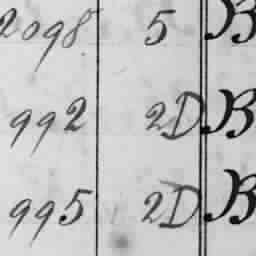 2098 5 B
992 2D B
995 2D B